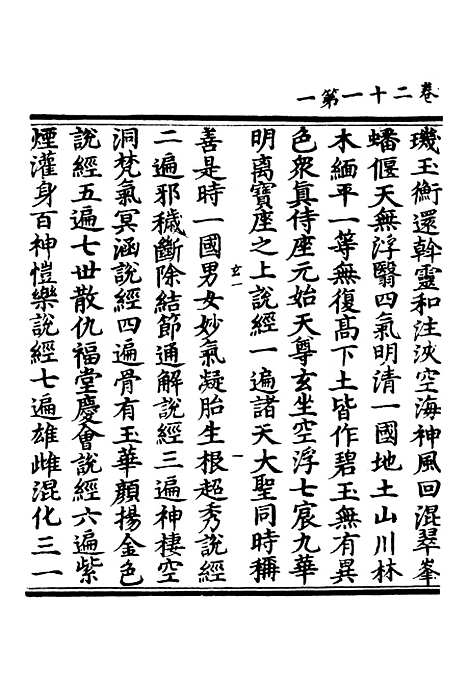 卷二十一第一
璣玉衡還斡靈和注浹空海神風回混翠峯
蟠偃天無浮翳四氣明清一國地土山川林
木緬平一等無復髙下土皆作碧玉無有異
色衆真侍座元始天尊玄坐空浮七宸九華
明離寶座之上說經一遍諸天大聖同時稱
玄一 一
善是時一國男女妙氣凝胎生根超秀說經
二遍邪穢斷除結節通解說經三遍神棲空
洞梵氣冥涵說經四遍骨有玉華顔揚金色
說經五遍七世散仇福堂慶會說經六遍紫
煙灌身百神愷樂說經七遍雄雌混化三一